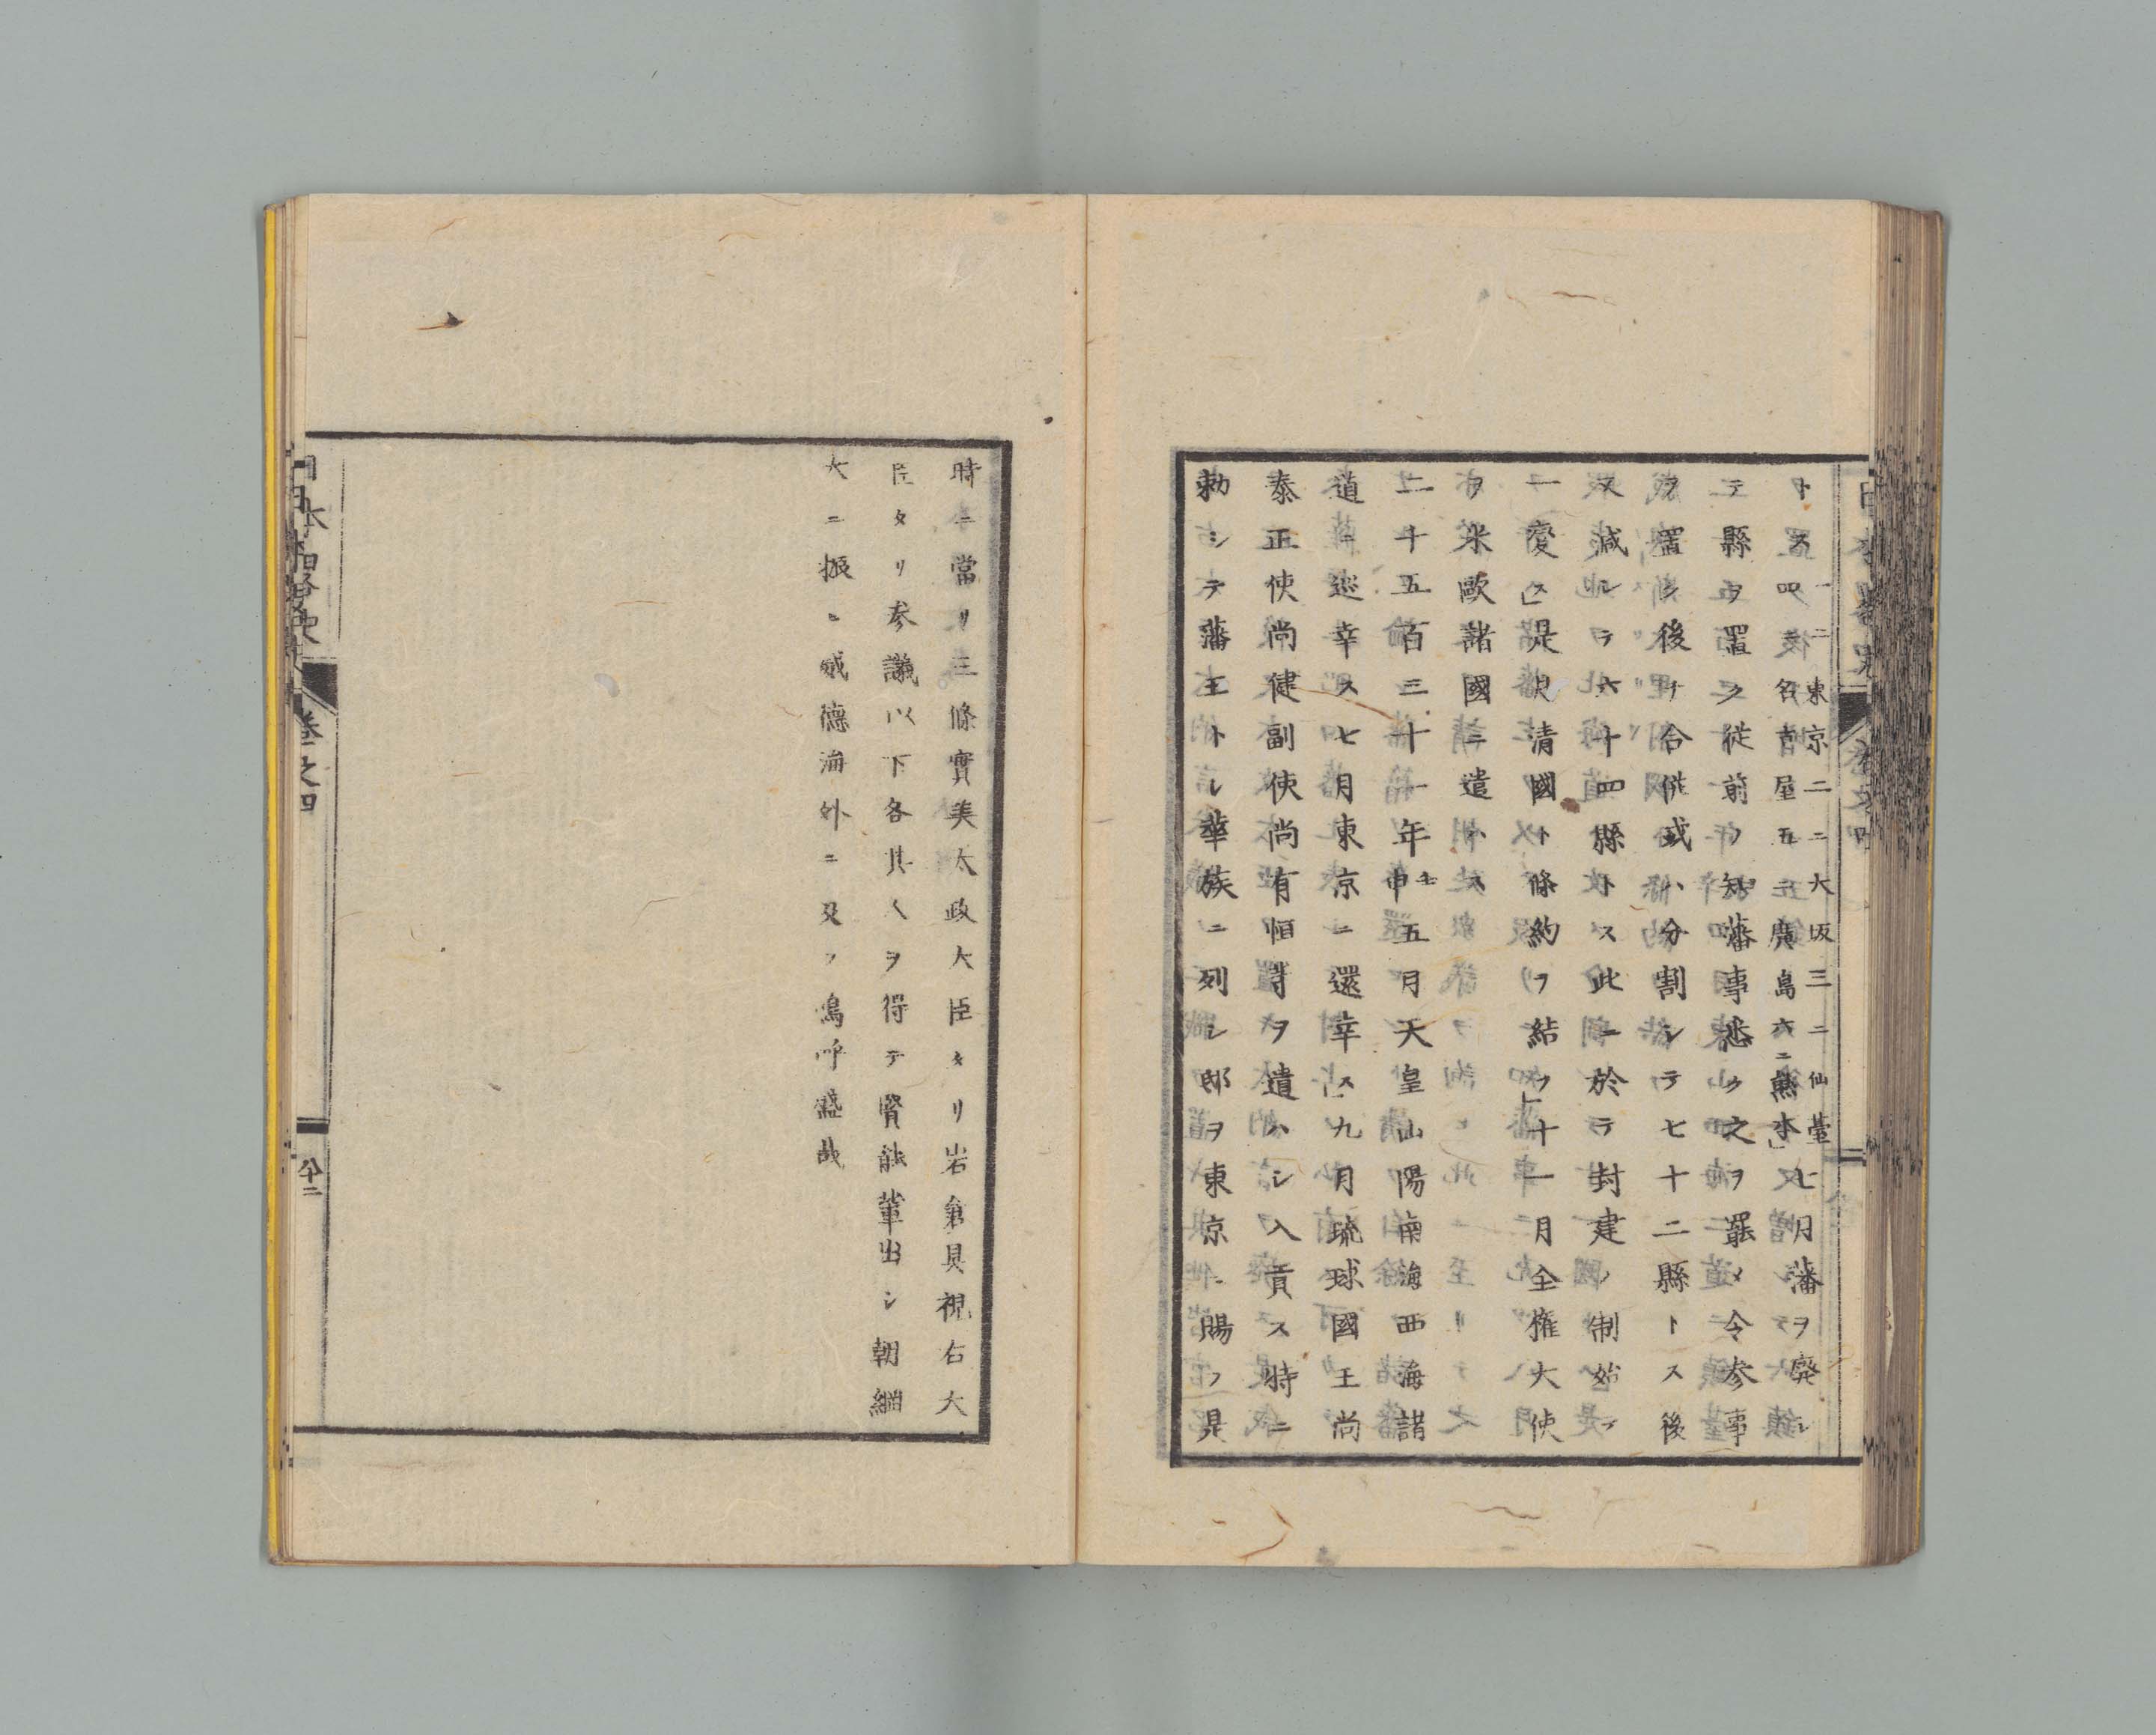 トス 一ニ東京二ニ大坂三ニ仙薹
四ニ名古屋五ニ廣島六ニ熊本」 七月藩ヲ廢シ
テ縣ヲ置ク從前ノ知藩事悉ク之ヲ罷メ令参事
ヲ置ク後チ合併或ハ分割シテ七十二縣トス後
又減シテ六十四縣トス此ニ於テ封建ノ制始テ
一変ス」是歳清國ト條約ヲ結フ」十一月全権大使
ヲ米歐諸國ニ遣ハス
二千五百三十一年壬申五月天皇山陽南海西海諸
道ニ巡幸ス七月東京ニ還幸ス」九月琉球國王尚
泰正使尚健副使尚有恒等ヲ遣ハシ入貢ス時ニ
勅シテ藩王トシ華族ニ列シ邸ヲ東京ニ賜フ是
時ニ當リ三條實美太政大臣タリ岩倉具視右大
臣タリ参議以下各其人ヲ得テ賢能輩出シ朝綱
大ニ振ヒ威德海外ニ及フ嗚呼盛哉
日本略史 卷之四 八十二